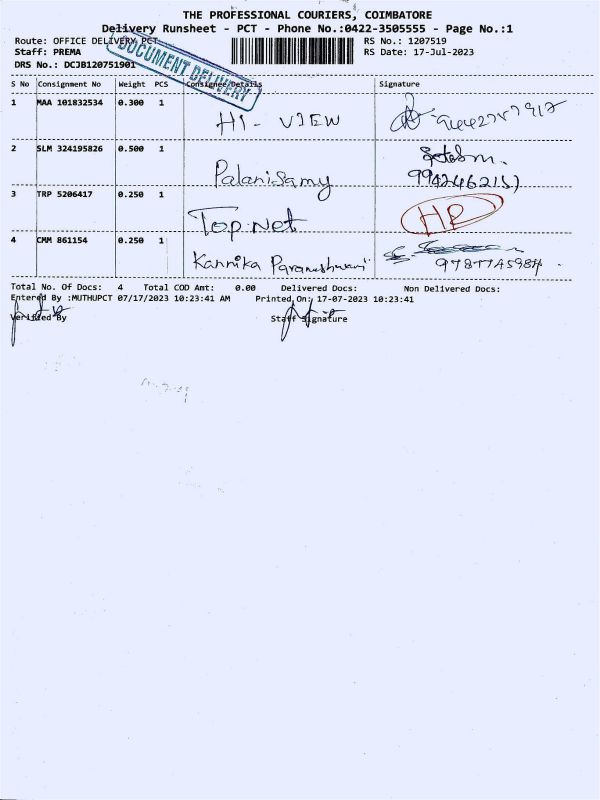 THE PROFESSIONAL COURIERS, COIMBATORE
Delivery Runsheet - PCT - Phone No.:0422-3505555 - Page No.:1
Route: OFFICE DELIVERY PCT RS No.: 1207519
Staff: PREMA RS Date: 17-Jul-2023
DRS No.: DCJB120751901
DOCUMENT DELIVERY
S No Consignment No Weight PCS Consignee/Details Signature
1 MAA 101832534 0.300 1 HI - VIEW
2 SLM 324195826 0.500 1 Palanisamy
3 TRP 5206417 0.250 1 Top.Net HR
4 CMM 861154 0.250 1 Kannika Parameshwari
Total No. Of Docs: 4 Total COD Amt: 0.00 Delivered Docs: Non Delivered Docs:
Entered By :MUTHUPCT 07/17/2023 10:23:41 AM Printed On: 17-07-2023 10:23:41
Verified By Staff Signature